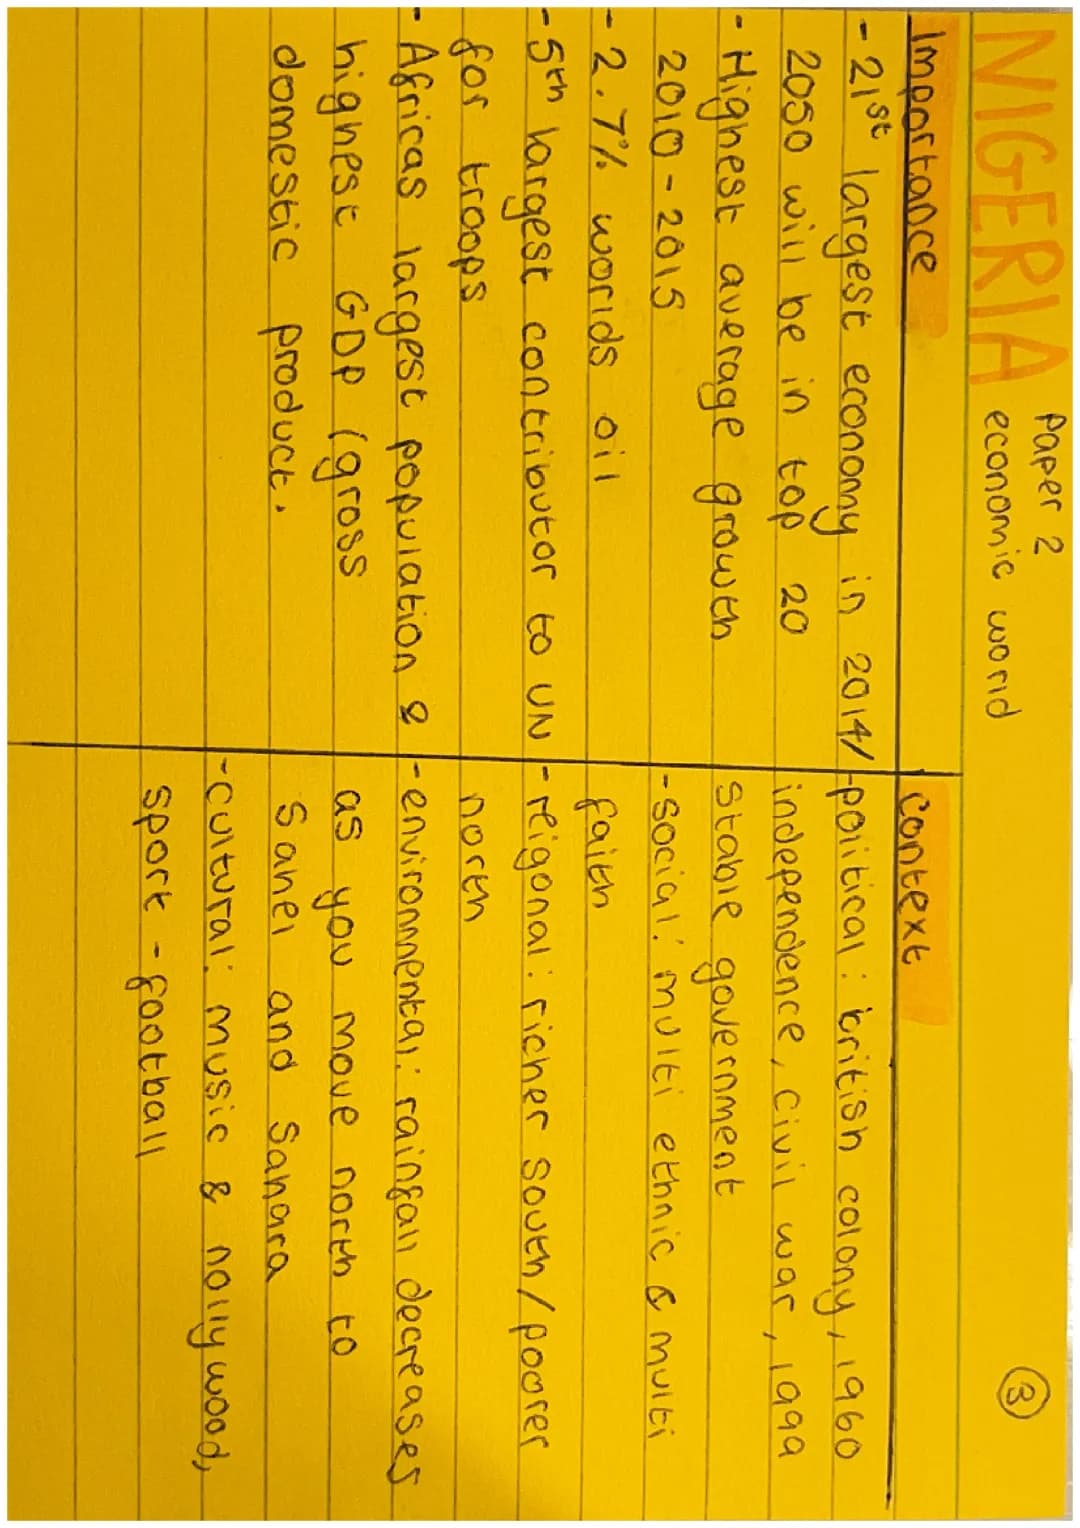 NIGERIA
Paper 2
economic world
3
Importance
- 21st largest economy in 2014/
2050 will be in top 20
- Highest average growth
2010 - 2015
- 2.7% worlds oil
- 5th largest contributor to UN
for troops
- Africas largest population &
highest GDP (gross
domestic product.
Context
- political: british colony, 1960
independence, civil war, 1999
stable government
- social: multi ethnic & multi
faith
- reigonal: richer south/poorer
north
- environmental: rainfall decreases
as you move north to
Sahel and Sahara
- cultural: music & nollywood,
sport - football